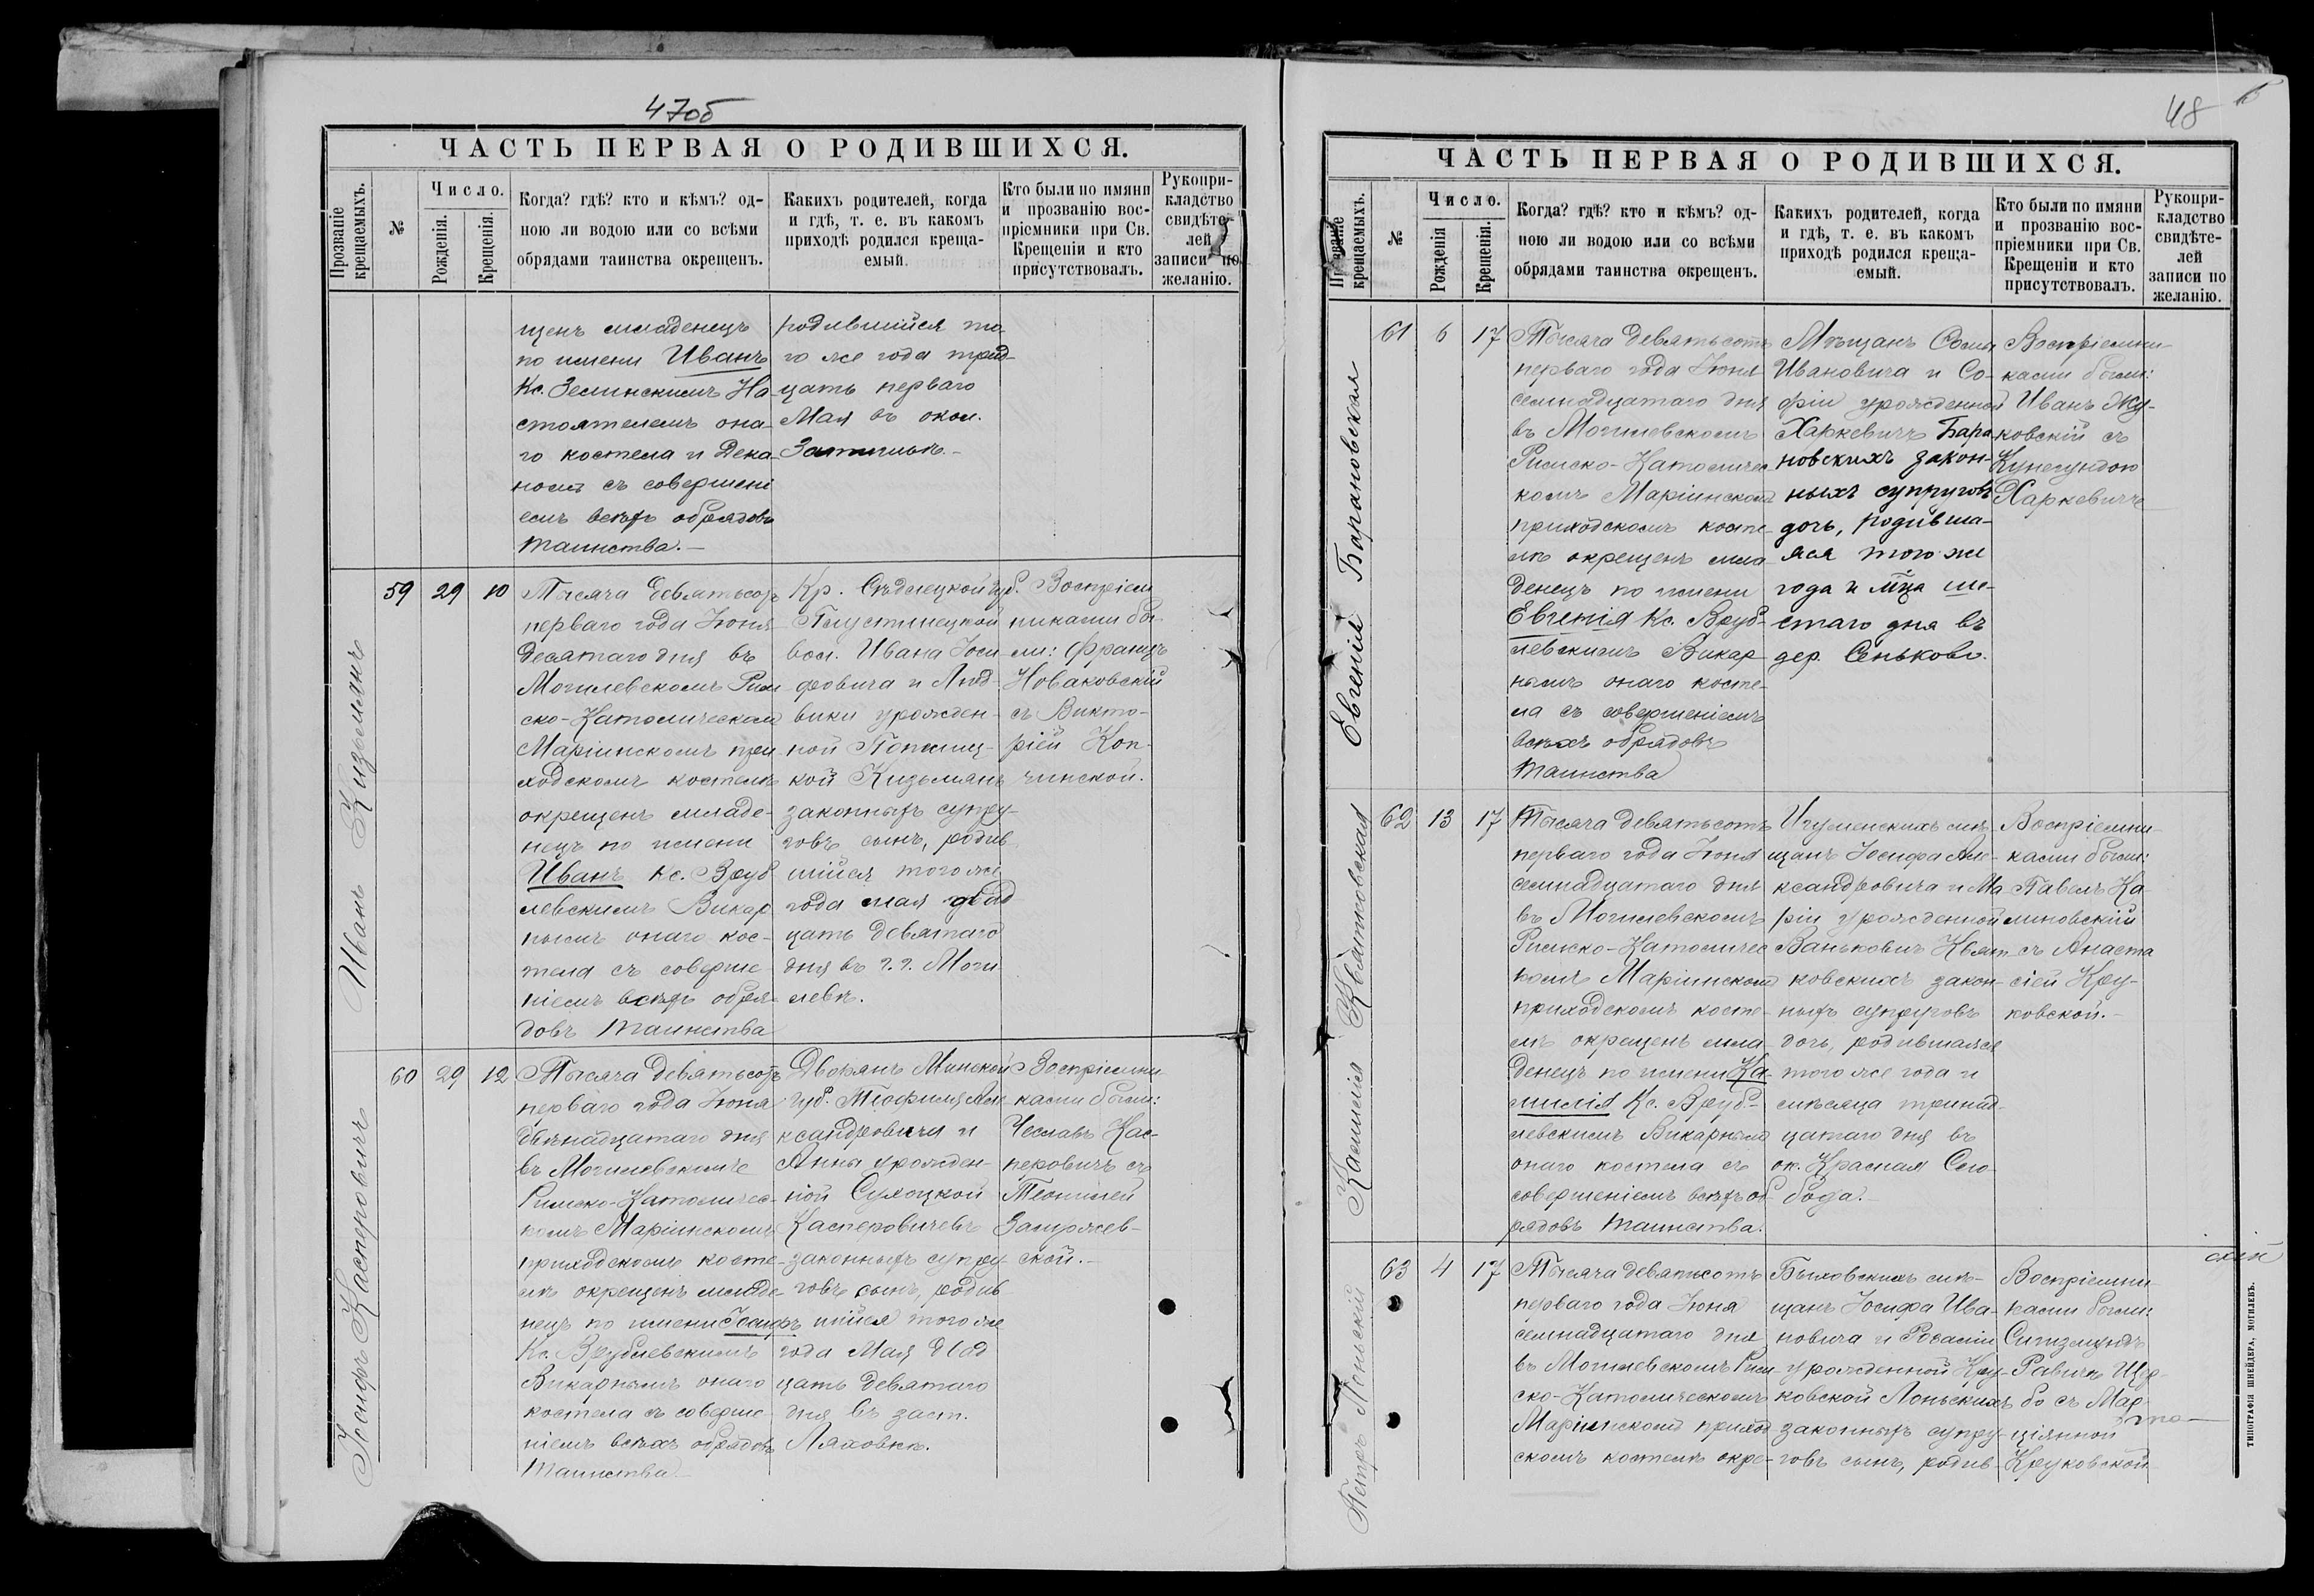 47об
ЧАСТЬ ПЕРВАЯ О РОДИВШИХСЯ.
Прозваніе крещаемыхъ.
№
Число.
Рожденія.
Крещенія.
Когда? гдѣ? кто и кѣмъ? од-
ною ли водою или со всѣми
обрядами таинства окрещенъ.
Какихъ родителей, когда
и гдѣ, т. е. въ какомъ
приходѣ родился креща-
емый.
Кто были по имяни
и прозванію вос-
пріемники при Св.
Крещеніи и кто
присутствовалъ.
Рукопри-
кладство
свидѣте-
лей
записи по
желанію.
щенъ младенецъ
по имени Иванъ
Кс. Зелинскимъ На-
стоятелемъ она-
го костела и Дека-
номъ съ совершені
емъ всѣхъ обрядовъ
таинства.—
родившійся то-
го же года трид-
цать перваго
Мая въ окол.
Затишьѣ.—
Иванъ Кизьмянъ
59 29 10
Тысяча девятьсотъ
перваго года Іюня
десятаго дня въ
Могилевскомъ Рим
ско-Католическомъ
Маріинскомъ при
ходскомъ костелѣ
окрещенъ младе-
нецъ по имени
Иванъ Кс. Вруб
левскимъ Викар
нымъ онаго кос-
тела съ соверше
ніемъ всѣхъ обря-
довъ таинства
Кр. Сѣдлецкой губ.
вол. Ивана Іоси
фовича и Люд-
вики урожден-
ной
кой Кизьмянъ
законныхъ супру-
говъ сынъ, родив
шійся того же
года мая двад
цать девятаго
дня въ г. г. Моги
левѣ.
Воспріем
никами бы-
ли: Францъ
Новаковскій
съ Викто-
ріей Коп-
чинской.
Іосифъ Касперовичъ
60 29 12
Тысяча девятьсотъ
перваго года Іюня
двѣнадцатаго дня
въ Могилевскомъ
Римско-Католичес-
комъ Маріинскомъ
приходскомъ косте-
лѣ окрещенъ младе
нецъ по имени Іосифъ
Кс. Врублевскимъ
Викарнымъ онаго
костела съ соверше
ніемъ всѣхъ обрядовъ
таинства—
Дворянъ Минской
губ. Теофила Але-
ксандровича и
Анны урожден-
ной Сулоцкой
Касперовичевъ
законныхъ супру-
говъ сынъ, родив
шійся того же
года Мая двад
цать девятаго
дня въ заст.
Ляховкѣ.
Воспріемни
ками были:
Чеславъ Кас-
перовичъ съ
Теофилей
ской.—
48
ЧАСТЬ ПЕРВАЯ О РОДИВШИХСЯ.
Прозваніе крещаемыхъ.
№
Число.
Рожденія
Крещенія.
Когда? гдѣ? кто и кѣмъ? од-
ною ли водою или со всѣми
обрядами таинства окрещенъ.
Какихъ родителей, когда
и гдѣ, т. е. въ какомъ
приходѣ родился креща-
емый.
Кто были по имяни
и прозванію вос-
пріемники при Св.
Крещеніи и кто
присутствовалъ.
Рукопри-
кладство
свидѣте-
лей
записи по
желанію.
Евгенія Барановская
61 6 17
Тысяча девятьсотъ
перваго года Іюня
семнадцатаго дня
въ Могилевскомъ
Римско-Католичес
комъ Маріинскомъ
приходскомъ косте
лѣ окрещенъ мла
денецъ по имени
Евгенія Кс. Вруб-
левскимъ Викар
нымъ онаго косте-
ла съ совершеніемъ
всѣхъ обрядовъ
таинства
Мѣщанъ Ѳомы
Ивановича и Со-
фіи урожденной
Харкевичъ Бара
новскихъ закон-
ныхъ супруговъ
дочь, родивша-
яся того же
года и м-ца ше-
стаго дня въ
дер. Сеньково.
Воспріемни-
ками были:
Иванъ Жу-
ковскій съ
Кунегундою
Харкевичъ
Камилія Квятковская
62 13 17
Тысяча девятьсотъ
перваго года Іюня
семнадцатаго дня
въ Могилевскомъ
Римско-Католичес
комъ Маріинскомъ
приходскомъ косте-
лѣ окрещенъ мла-
денецъ по имени Ка-
милія Кс. Вруб-
левскимъ Викарнымъ
онаго костела съ
совершеніемъ всѣхъ об
рядовъ таинства.
Игуменскихъ мѣ-
щанъ Іосифа Але-
ксандровича и Ма
ріи урожденной
Ваньковичъ Квят-
ковскихъ закон-
ныхъ супруговъ
дочь, родившаяся
того же года и
мѣсяца тринад-
цатаго дня въ
ок. Красная Сло-
бода.—
Воспріемни-
ками были:
Павелъ Ка-
линовскій
съ Анаста
сіей Кру-
ковской.—
Петръ Лоньскій
63 4 17
Тысяча девятьсотъ
перваго года Іюня
семнадцатаго дня
въ Могилевскомъ Рим
ско-Католическомъ
Маріинскомъ приход
скомъ костелѣ окре-
Быховскихъ мѣ-
щанъ Іосифа Ива-
новича и Розаліи
урожденной Кру-
ковской Лоньскихъ
законныхъ супру-
говъ сынъ, родив-
Воспріемни-
ками были:
Сигизмундъ
Равичъ Щер-
бо съ Мар-
ціянной
Круковской
ТИПОГРАФІЯ ШНЕЙДЕРА, МОГИЛЕВЪ.